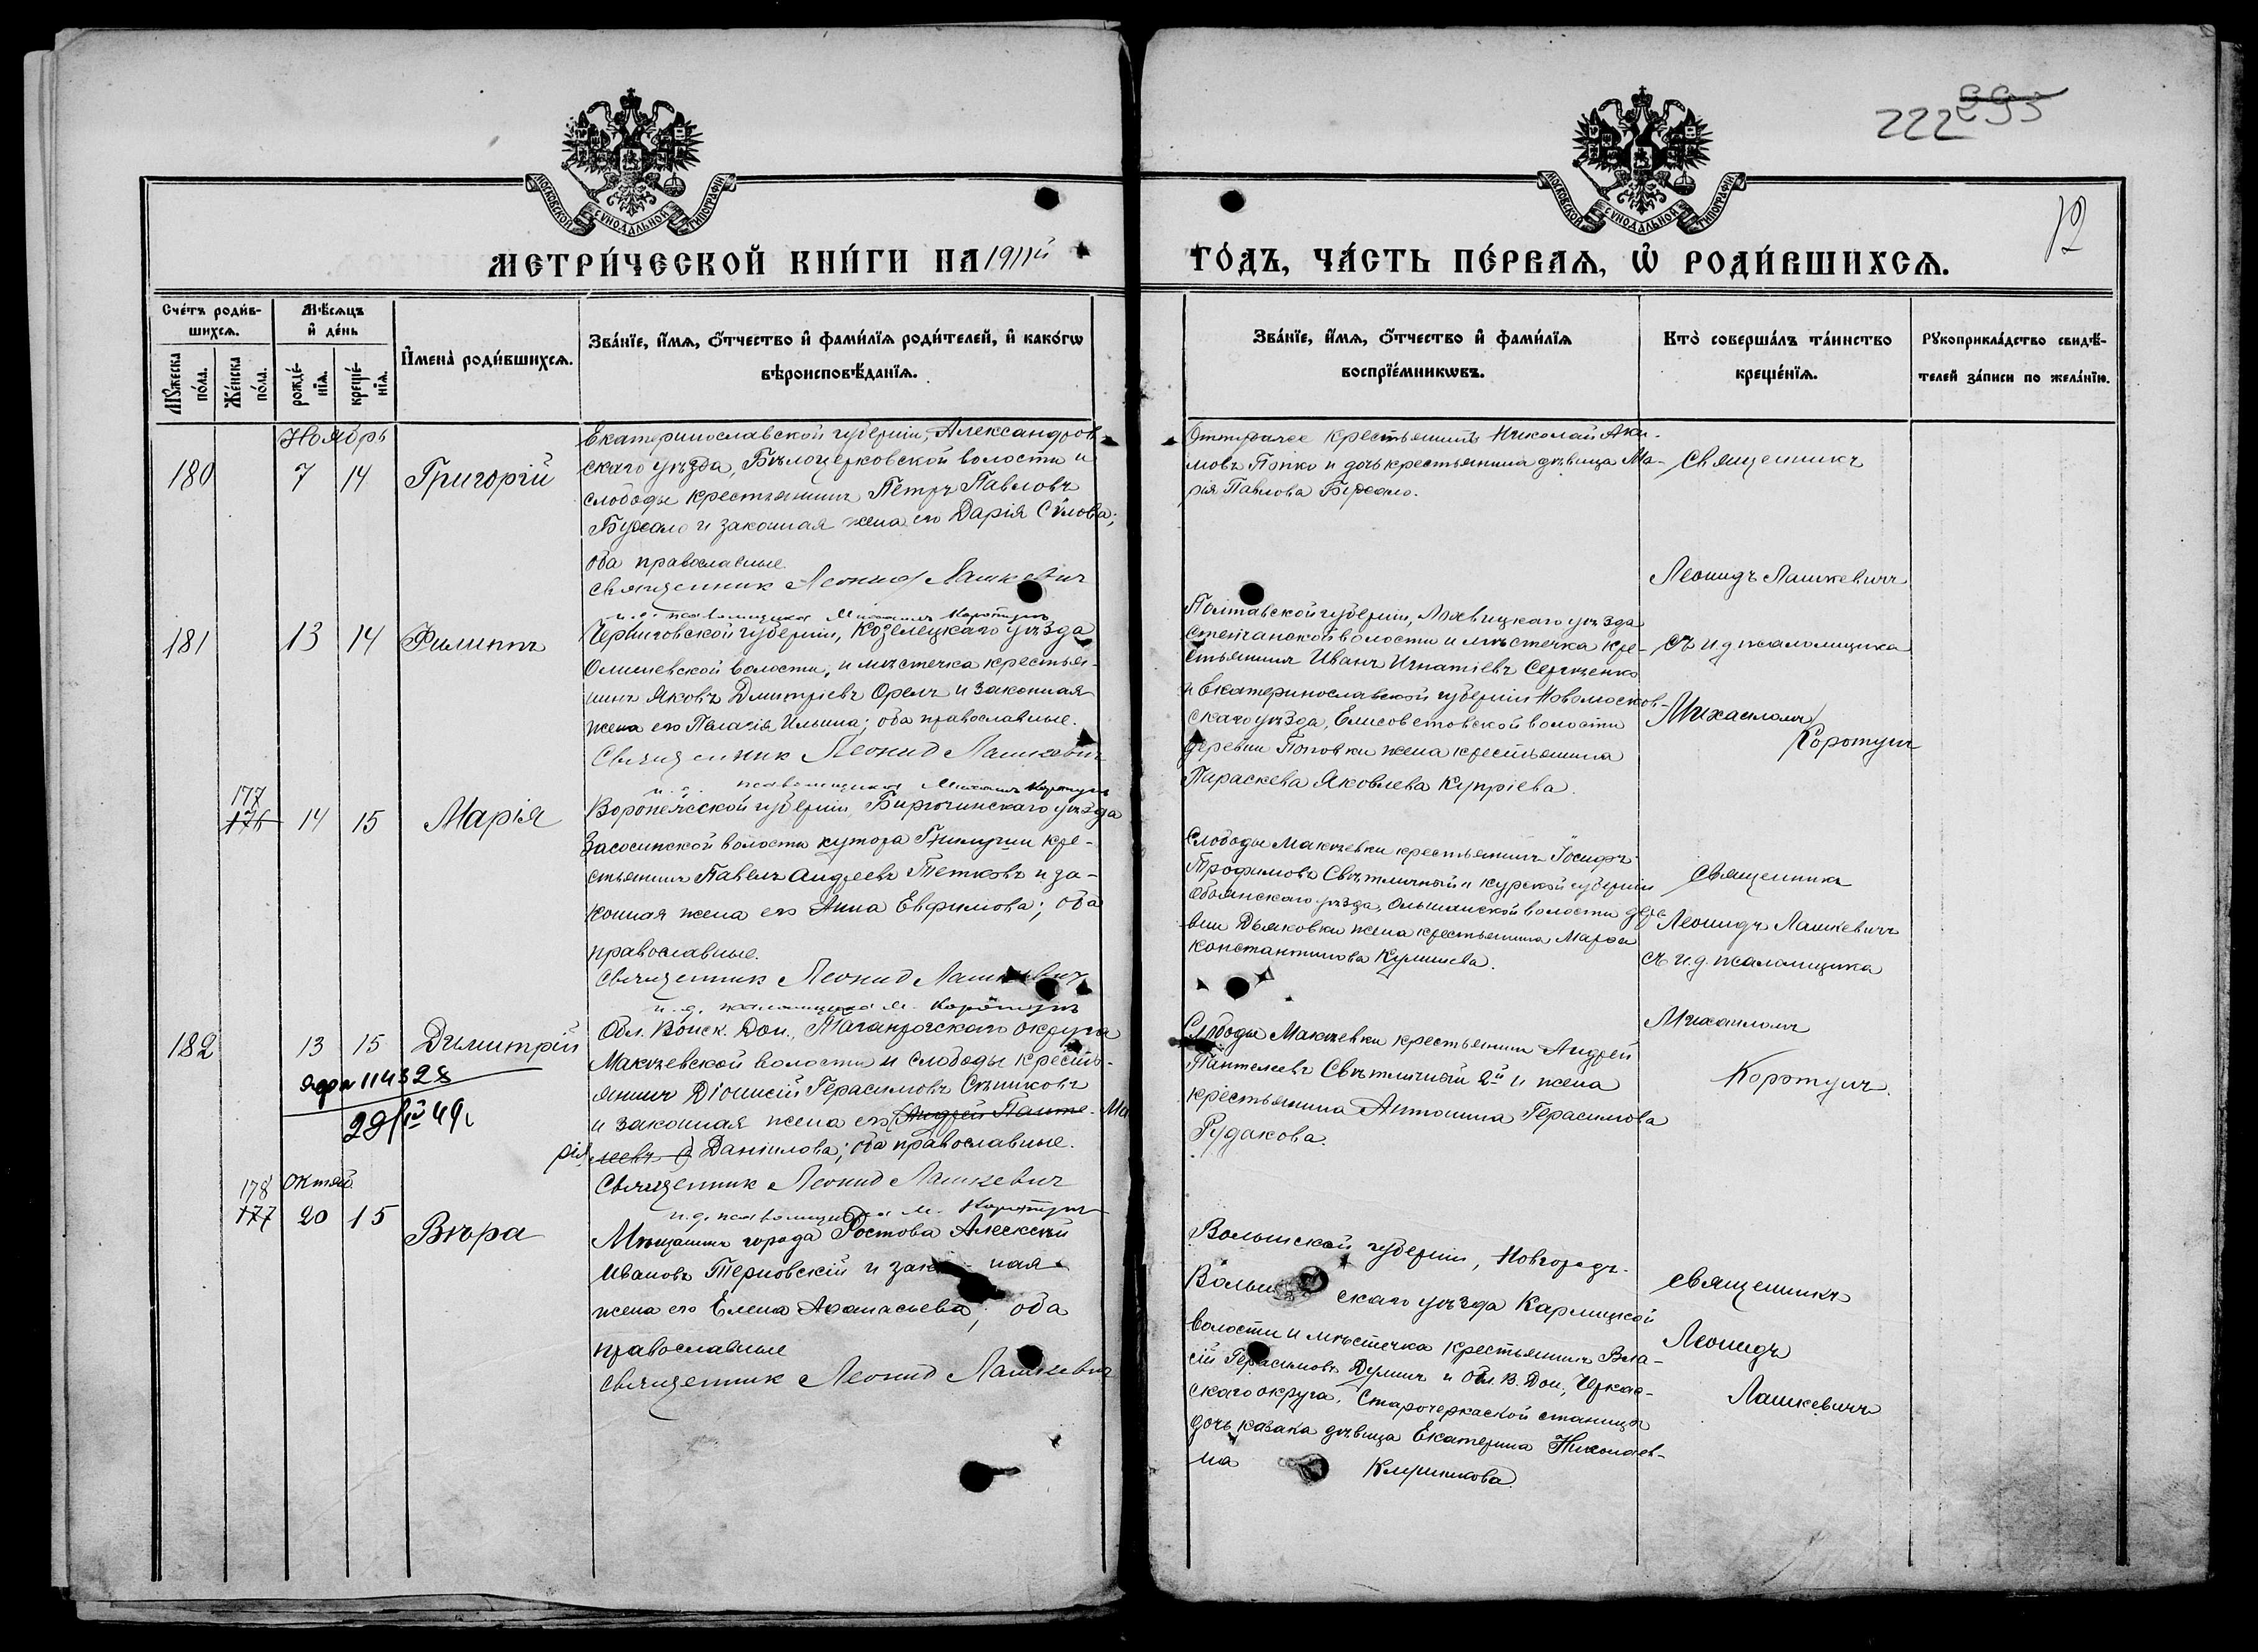 222 293
12
МОСКОВСКОЙ СѴНОДАЛЬНОЙ ТИПОГРАФІИ
МОСКОВСКОЙ СѴНОДАЛЬНОЙ ТИПОГРАФІИ
МЕТРИ́ЧЕСКОЙ КНИ́ГИ НА 1911й ГО́ДЪ, ЧА́СТЬ ПЕ́РВАѦ, Ѡ҆ РОДИ́ВШИХСѦ.
Сче́тъ роди́в-
шихсѧ.
Мꙋ́жеска по́ла.
Же́нска по́ла.
Мѣ́сѧцъ
и҆ де́нь
рожде́-
нїѧ.
креще́-
нїѧ.
И҆мена̀ роди́вшихсѧ.
Зва́нїе, и҆́мѧ, ѻ҆́тчество и҆ фами́лїѧ роди́телей, и҆ како́гѡ
вѣроисповѣ́данїѧ.
Зва́нїе, и҆́мѧ, ѻ҆́тчество и҆ фами́лїѧ
воспрїе́мникѡвъ.
Кто̀ соверша́лъ та́инство
креще́нїѧ.
Рꙋкоприкла́дство свидѣ́-
телей за́писи по жела́нїю.
Ноябрь
180 7 14 Григорій
Екатеринославской губерніи, Александров-
скаго уѣзда, Бѣлоцерковской волости и
слободы крестьянинъ Петръ Павловъ
Бухало и законная жена его Дарія Сѵлова;
оба православные.
Священник Леонид Лашкевич
и. д. псаломщика Михаилъ Коротунъ
крестьянинъ Николай Аки-
мовъ Попко и дочь крестьянина дѣвица Ма-
рія Павлова Бухало.
Священникъ
Леонидъ Лашкевичъ
181 13 14 Филиппъ
Черниговской губерніи, Козелецкаго уѣзда
Олишевской волости, и мѣстечка крестья-
нинъ Яковъ Дмитріевъ Орелъ и законная
жена его Пелагія Ильина; оба православные.
Священник Леонид Лашкевич
и. д. псаломщика Михаилъ Коротунъ
Полтавской губерніи, Лохвицкаго уѣзда
волости и мѣстечка кре-
стьянинъ Иванъ Игнатіевъ Сергіенко
и Екатеринославской губерніи Новомосков-
скаго уѣзда, Елисовстовской волости
деревни Поповки жена крестьянина
Параскева Яковлева Купріева.
съ и.д. псаломщика
Михаиломъ
Коротунъ
177
176 14 15 Марія
Воронежской губерніи, Бирюченскаго уѣзда
Засосенской волости хутора кре-
стьянинъ Павелъ Андреевъ Тетковъ и за-
конная жена его Анна Евфимова; оба
православные.
Священник Леонид Лашкевич
и. д. псаломщика М. Коротунъ
Слободы Макѣевки крестьянинъ Іосифъ
Трофимовъ Свѣтличный и Курской губерніи
Обоянскаго уѣзда, Ольшанской волости дере-
вни Дьяковки жена крестьянина Марфа
Константинова
Священникъ
Леонидъ Лашкевичъ
съ и.д. псаломщика
Михаиломъ
Коротунъ.
182 13 15 Димитрій
яфа 114328
49
Обл. Войск. Дон., Таганрогскаго округа
Макѣевской волости и слободы кресть-
янинъ Діонисій Герасимовъ Сѣпиковъ
и законная жена его Андрей Панте- Ма
рія леевъ С Даніилова; оба православные.
Священник Леонид Лашкевич
и. д. псаломщика М. Коротунъ
Слободы Макѣевки крестьянинъ Андрей
Пантелеевъ Свѣтличный 2й и жена
крестьянина Антонина Герасимова
Рудакова.
Октяб.
178
177 20 15 Вѣра
Мѣщанинъ города Ростова Алексѣй
Ивановъ Терновскій и зако ная
жена его Елена Аѳанасьева; оба
православные
Священник Леонид Лашкевич
Волынской губерніи, Новгородъ-
Волын скаго уѣзда Карлицкой
волости и мѣстечка крестьянинъ Вла-
сій Герасимовъ Думинъ и Обл. В. Дон, Черкас-
скаго округа, Старочеркаской станицы
дочь казака дѣвица Екатерина Николаев-
на
священникъ
Леонидъ
Лашкевичъ